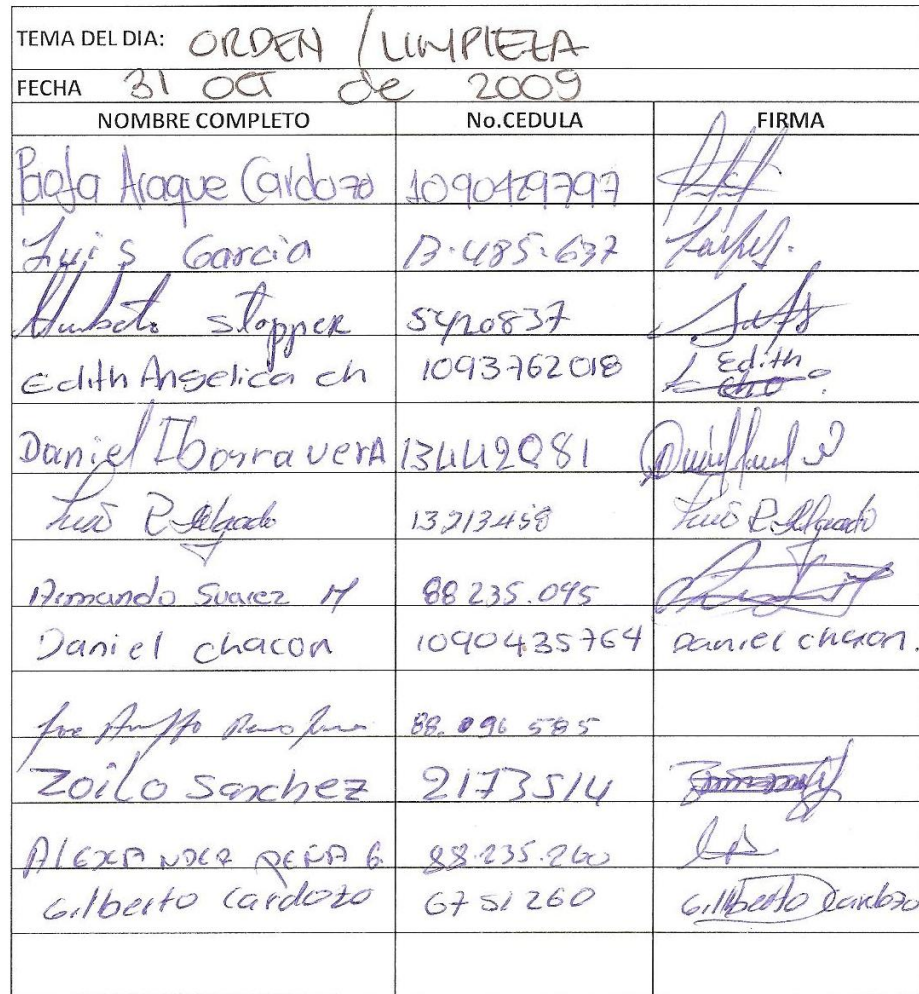 TEMA DEL DIA: ORDEN / LIMPIEZA
FECHA 31 OCT de 2009
NOMBRE COMPLETO No.CEDULA FIRMA
Paola Araque Cardozo 1090429797
Luis Garcia 13.485.637
Humberto Stopper 5420837
Edith Angelica ch 1093762018 Edith
Daniel Ibarra verA 13442081
Luis E. Delgado 13213458 Luis E. Delgado
Armando Suarez M 88 235.095
Daniel chacon 1090435764 Daniel chacon.
88.096 585
Zoilo Sanchez 2173514
AlExANDER PEÑA G 88.235.260
Gilberto Cardozo 6751260 Gilberto Cardozo